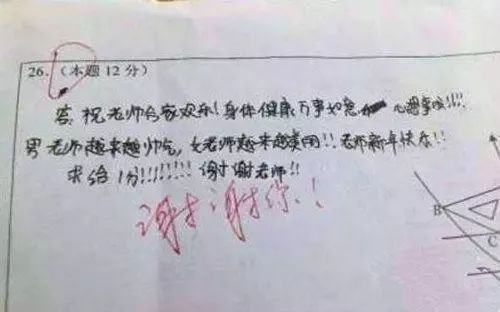 26.（本题12分）
答：祝老师合家欢乐！身体健康万事如意 心想事成!!!!
男老师越来越帅气，女老师越来越美丽!!老师新年快乐!!
求给1分!!!!!!!!谢谢老师!!
谢谢你!!
B
C